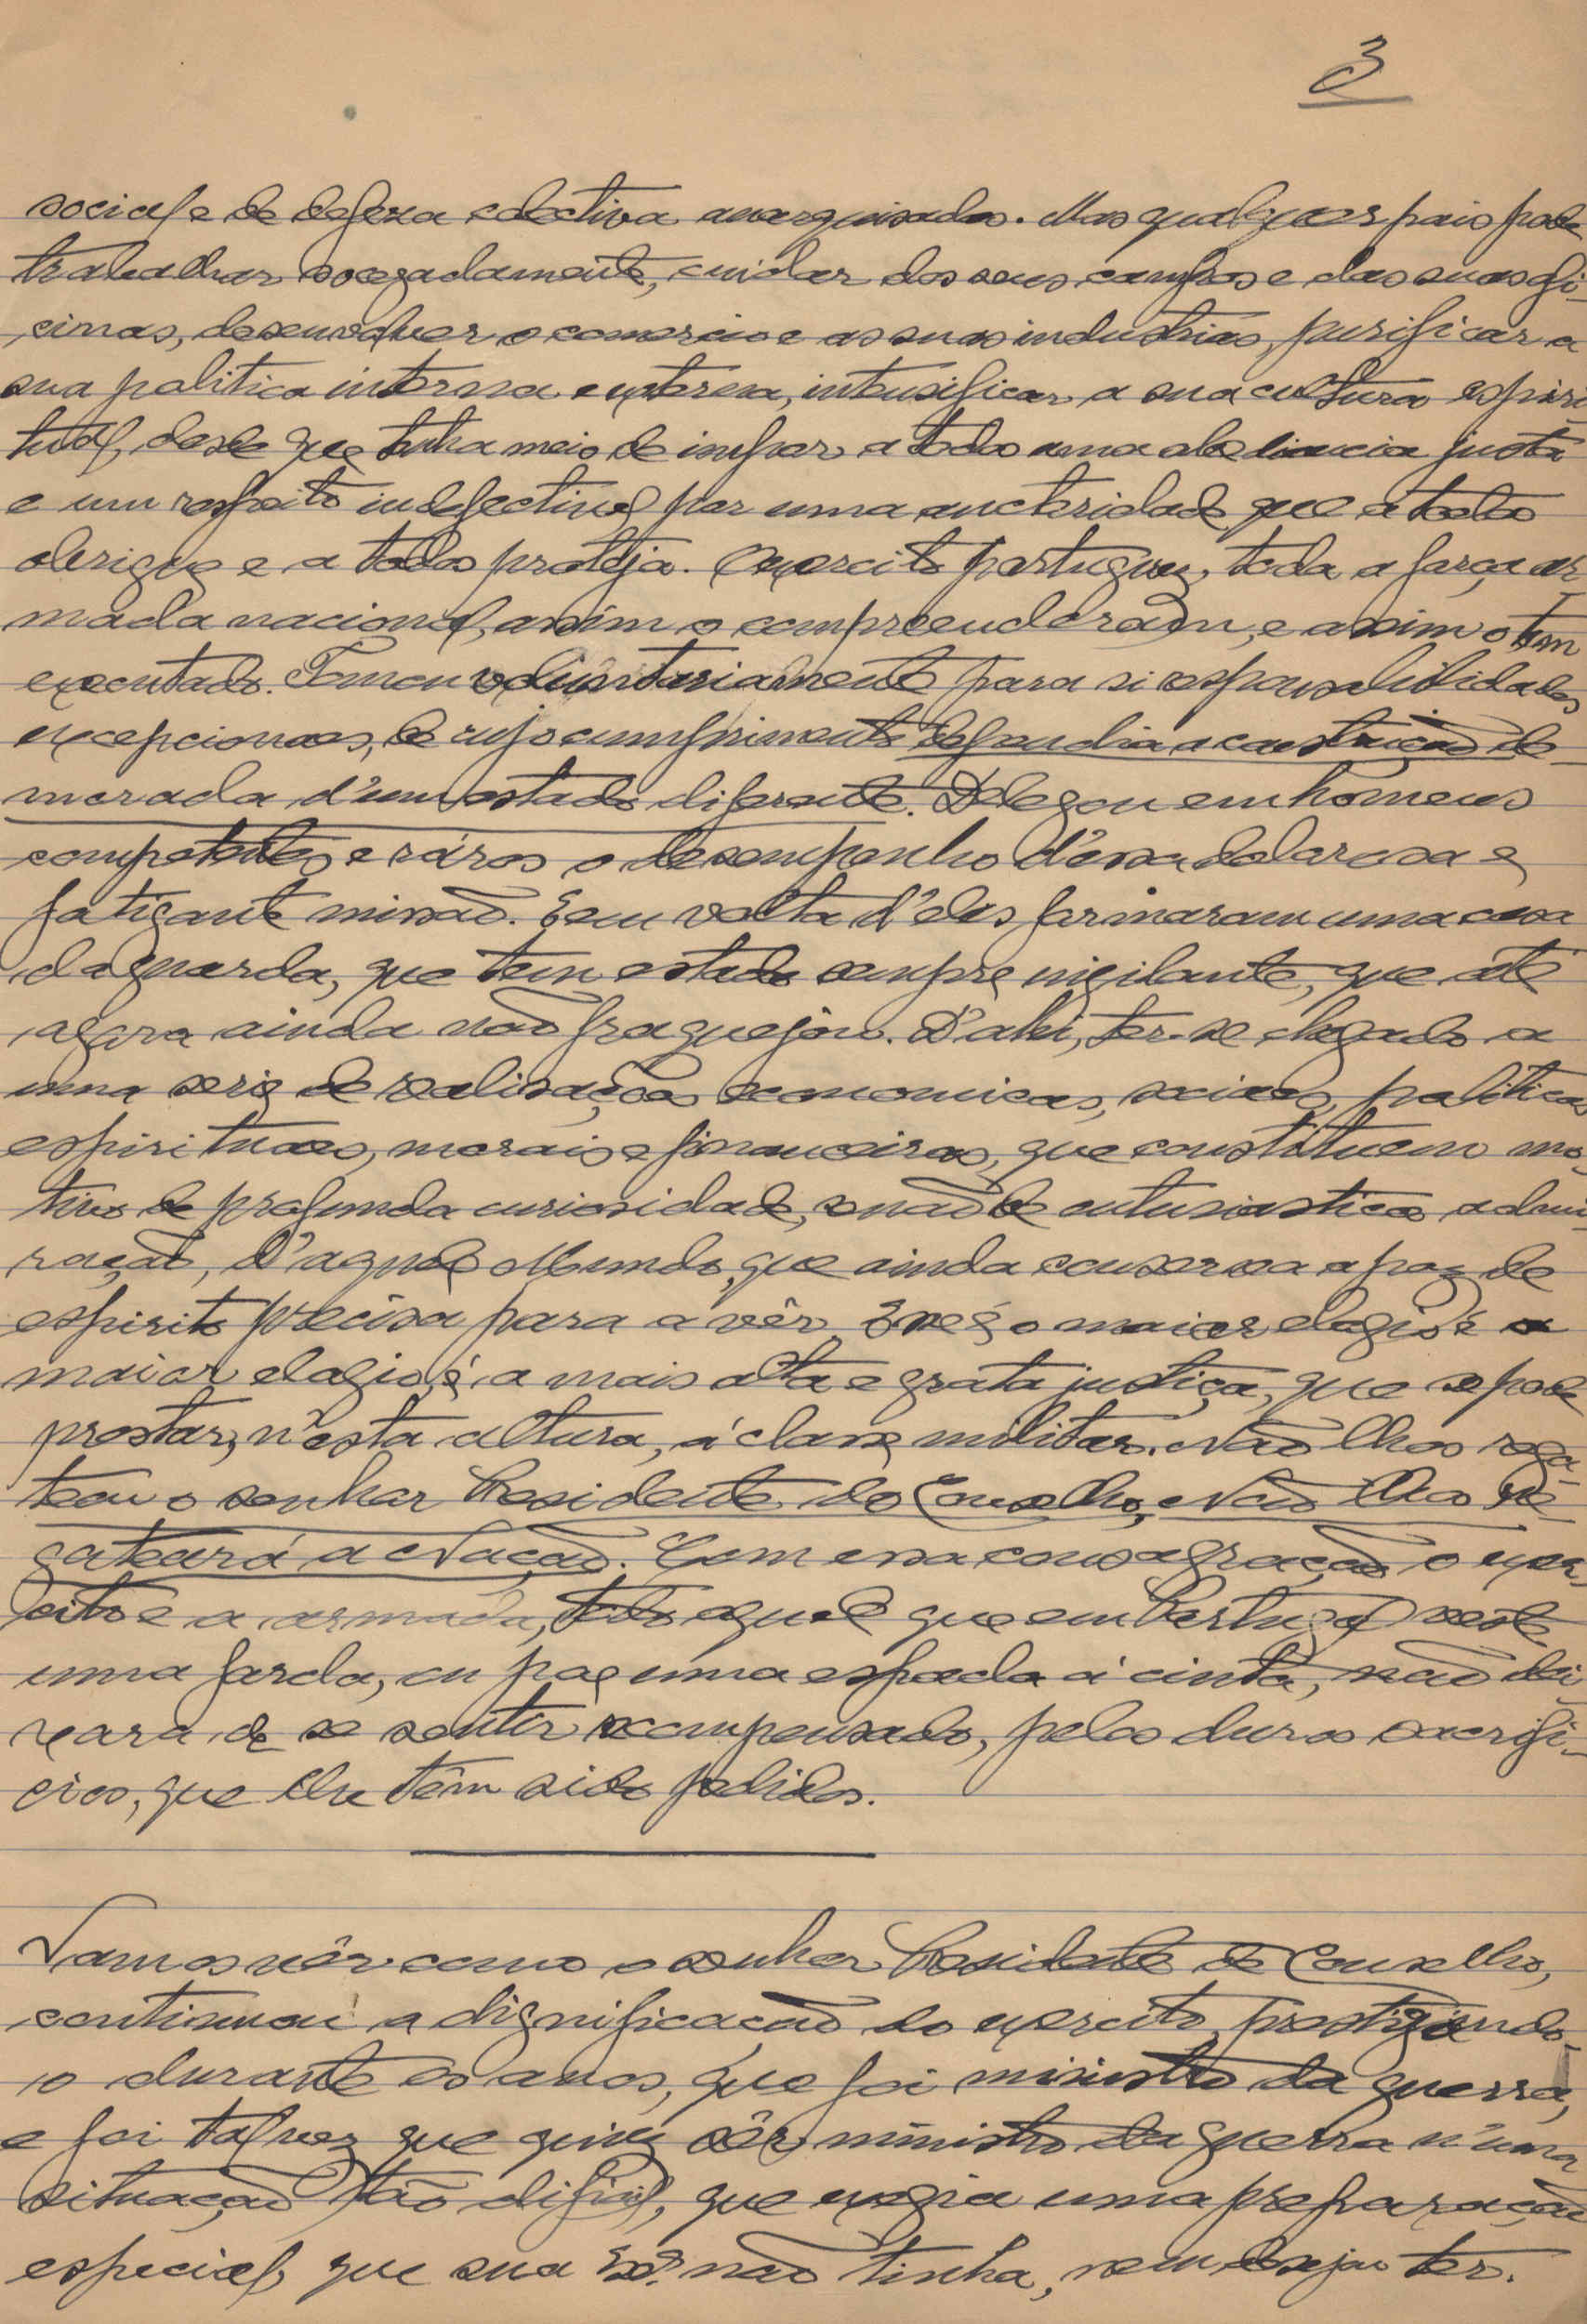 3
social e de defeza colectiva anarquisados. Mas qualquer pais pode
trabalhar socegadamente, cuidar dos seus campos e das suas ofi-
cinas, desenvolver o comercio e as suas industrias, purificar a
sua politica interna e externa, intensificar a sua cultura espiri-
tual, desde que tenha meio de impor a todos uma obediencia justa
e um respeito indefectivel por uma auctoridade que a todos
obrigue e a todos proteja. O exercito portuguez, toda a força ar-
mada nacional, assim o compreenderam, e assim o tem
executado. Tomou voluntariamente para si responsabilidades
excepcionaes, de cujo cumprimento dependia a construção de-
morada d'um estado diferente. Delegou em homens
competentes e ráros o desempenho d'essa dolorosa e
fatigante missão. E em volta d'eles formaram uma casa
da guarda, que tem estado sempre vigilante, que até
agora ainda não fraquejou. D'ahi, ter-se chegado a
uma serie de realisações economicas, sociaes, politicas
espirituaes, morais e financeiras, que constituem mo-
tivo de profunda curiosidade, senão de entusiastica admi-
ração, d'aquele Mundo, que ainda conserva a paz de
espirito precisa para a vêr. Esse é o maior elogio é o
maior elogio, é a mais alta e grata justiça, que se pode
prestar, n'esta altura, á classe militar. Não lhos rega-
teou o senhor Presidente do Conselho, Não lhos re-
gateará a Nação. Com essa consagração o exer-
cito e a armada, todo aquele que em Portugal veste
uma farda, ou põe uma espada á cinta, não dei-
xará de se sentir recompensado, pelos duros sacrifi-
cios, que lhe têm sido pedidos.
Vamos vêr como o senhor Presidente do Conselho,
continuou a dignificação do exercito, prestigiando-
-o durante os anos, que foi ministro da guerra,
e foi talvez que quiz sêr ministro da guerra n'uma
situação tão dificil, que exigia uma preparação
especial, que sua Exª. não tinha, nem desejou ter.